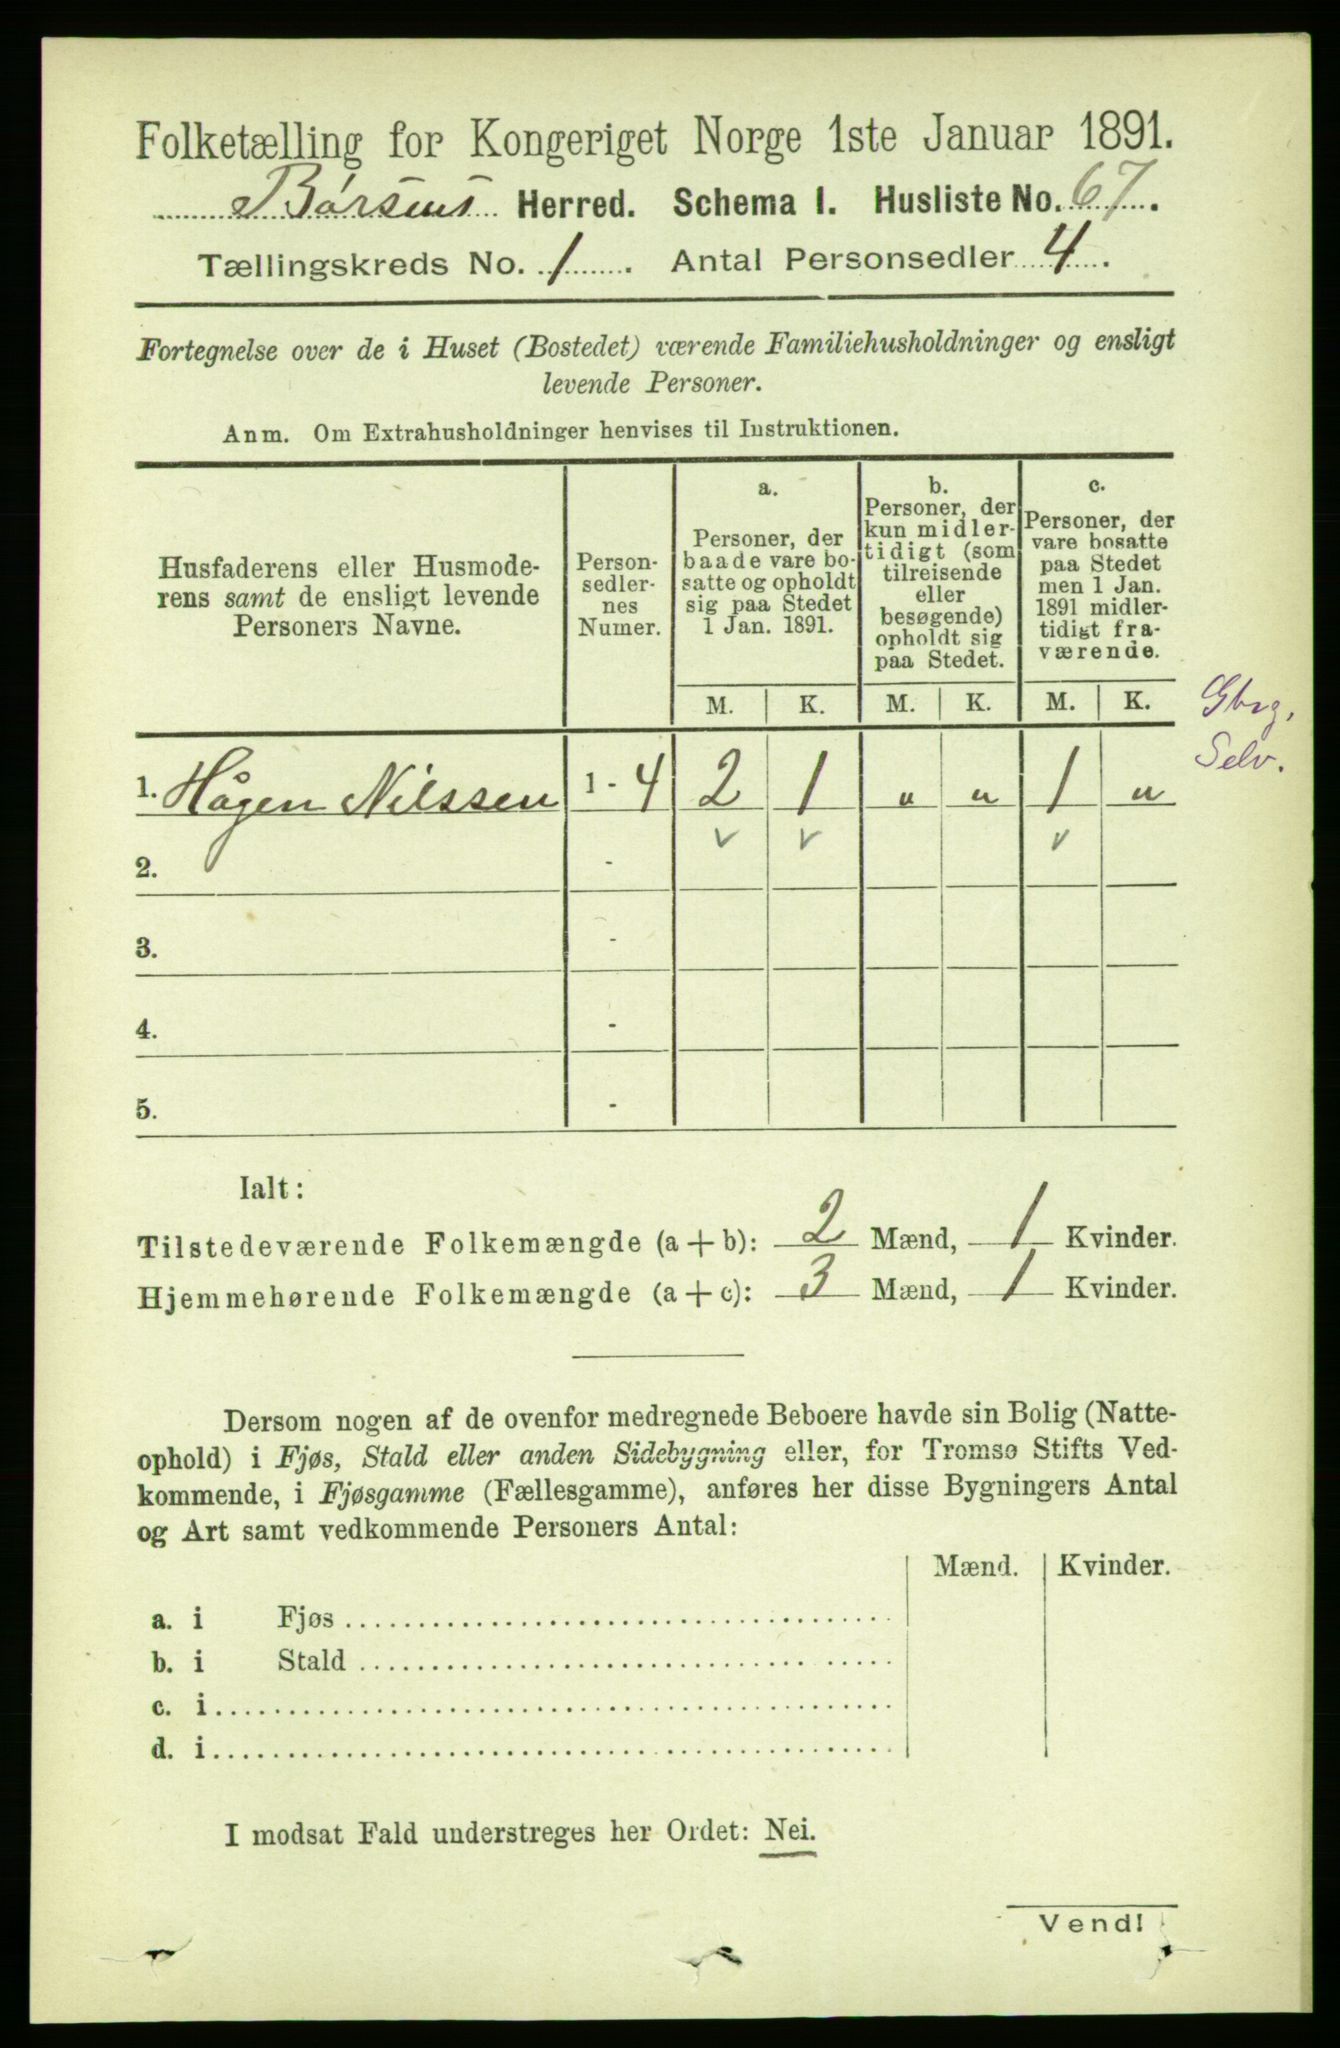 Folketælling for Kongeriget Norge 1ste Januar 1891.
Børsens Herred. Schema I. Husliste No. 67.
Tællingskreds No. 1. Antal Personsedler 4.
Fortegnelse over de i Huset (Bostedet) værende Familiehusholdninger og ensligt
levende Personer.
Anm. Om Extrahusholdninger henvises til Instruktionen.
Husfaderens eller Husmode-
rens samt de ensligt levende
Personers Navne.
Person-
sedler-
nes
Numer.
a.
Personer, der
baade vare bo-
satte og opholdt
sig paa Stedet
1 Jan. 1891.
b.
Personer, der
kun midler-
tidigt (som
tilreisende
eller
besøgende)
opholdt sig
paa Stedet.
c.
Personer, der
vare bosatte
paa Stedet
men 1 Jan.
1891 midler-
tidigt fra-
værende.
M. K. M. K. M. K.
Gbrg.
Selv.
1. Hågen Nilssen 1 - 4 2 1 " " 1 "
v v v
2. -
3. -
4. -
5. -
Ialt:
Tilstedeværende Folkemængde (a + b): 2 Mænd, 1 Kvinder.
Hjemmehørende Folkemængde (a + c): 3 Mænd, 1 Kvinder.
Dersom nogen af de ovenfor medregnede Beboere havde sin Bolig (Natte-
ophold) i Fjøs, Stald eller anden Sidebygning eller, for Tromsø Stifts Ved-
kommende, i Fjøsgamme (Fællesgamme), anføres her disse Bygningers Antal
og Art samt vedkommende Personers Antal:
Mænd. Kvinder.
a. i Fjøs
b. i Stald
c. i
d. i
I modsat Fald understreges her Ordet: Nei.
Vend!